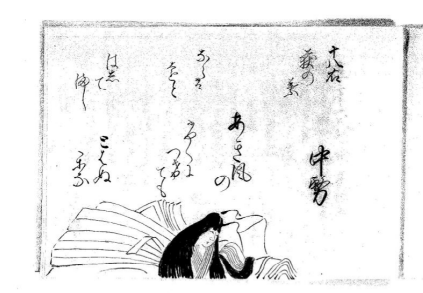 十八右
中務
あき風
の
ふくに
つけても
とはぬ
かな
荻の
葉
ならば
おと
はして
まし